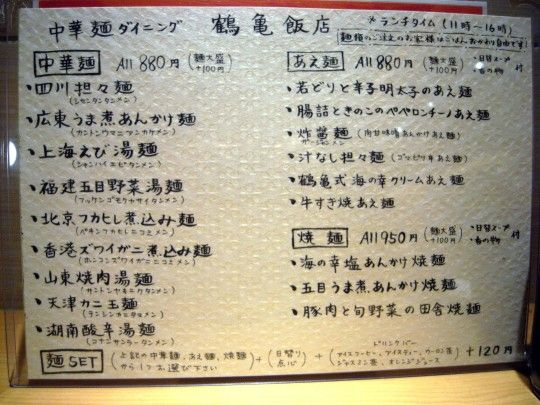 中華麺ダイニング 鶴亀飯店
*ランチタイム(11時~16時)
麺類のご注文のお客様はごはんおかわり自由です!
中華麺 All 880円 (麺大盛 +100円)
・四川担々麺
(シセンタンタンメン)
・広東うま煮あんかけ麺
(カントンウマニアンカケメン)
・上海えび湯麺
(シャンハイエビタンメン)
・福建五目野菜湯麺
(フッケンゴモクヤサイタンメン)
・北京フカヒレ煮込み麺
(ペキンフカヒレニコミメン)
・香港ズワイガニ煮込み麺
(ホンコンズワイガニニコミメン)
・山東焼肉湯麺
(サントンヤキニクタンメン)
・天津カニ玉麺
(テンシンカニタマメン)
・湖南酸辛湯麺
(コナンサンラータンメン)
あえ麺 All 880円 (麺大盛 +100円) ・日替スープ ・香の物 付
・若どりと辛子明太子のあえ麺
・腸詰ときのこのペペロンチーノあえ麺
・炸醤麺 (肉甘味噌あんかけあえ麺)
(ジャージャンメン)
・汁なし担々麺 (ゴマピリ辛あえ麺)
・鶴亀式 海の幸クリームあえ麺
・牛すき焼あえ麺
焼麺 All 950円 (麺大盛 +100円) ・日替スープ ・香の物 付
・海の幸塩あんかけ焼麺
・五目うま煮あんかけ焼麺
・豚肉と旬野菜の田舎焼麺
麺SET (上記の中華麺、あえ麺、焼麺から1つお選び下さい) + (日替り点心) + (ドリンクバー アイスコーヒー、アイスティー、ウーロン茶 ジャスミン茶、オレンジジュース) +120円